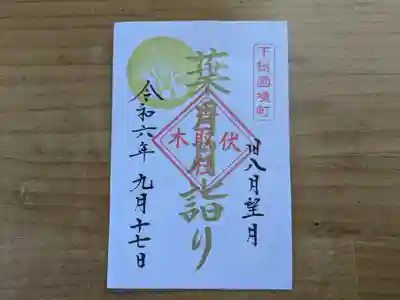 下総國境町
旧八月望月
葉月月詣り
伏木
令和六年 九月十七日